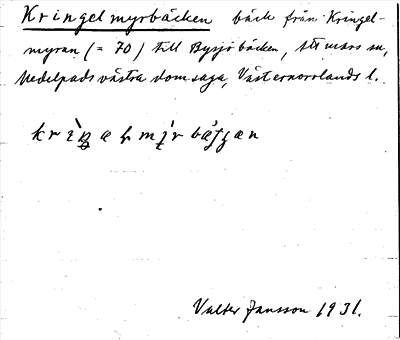 Kringelmyrbäcken bäck från Kringel-
myran (= 70) till Bysjöbäcken, sn,
Medelpads västra domsaga, Västernorrlands l.
Valter Jansson 1931.